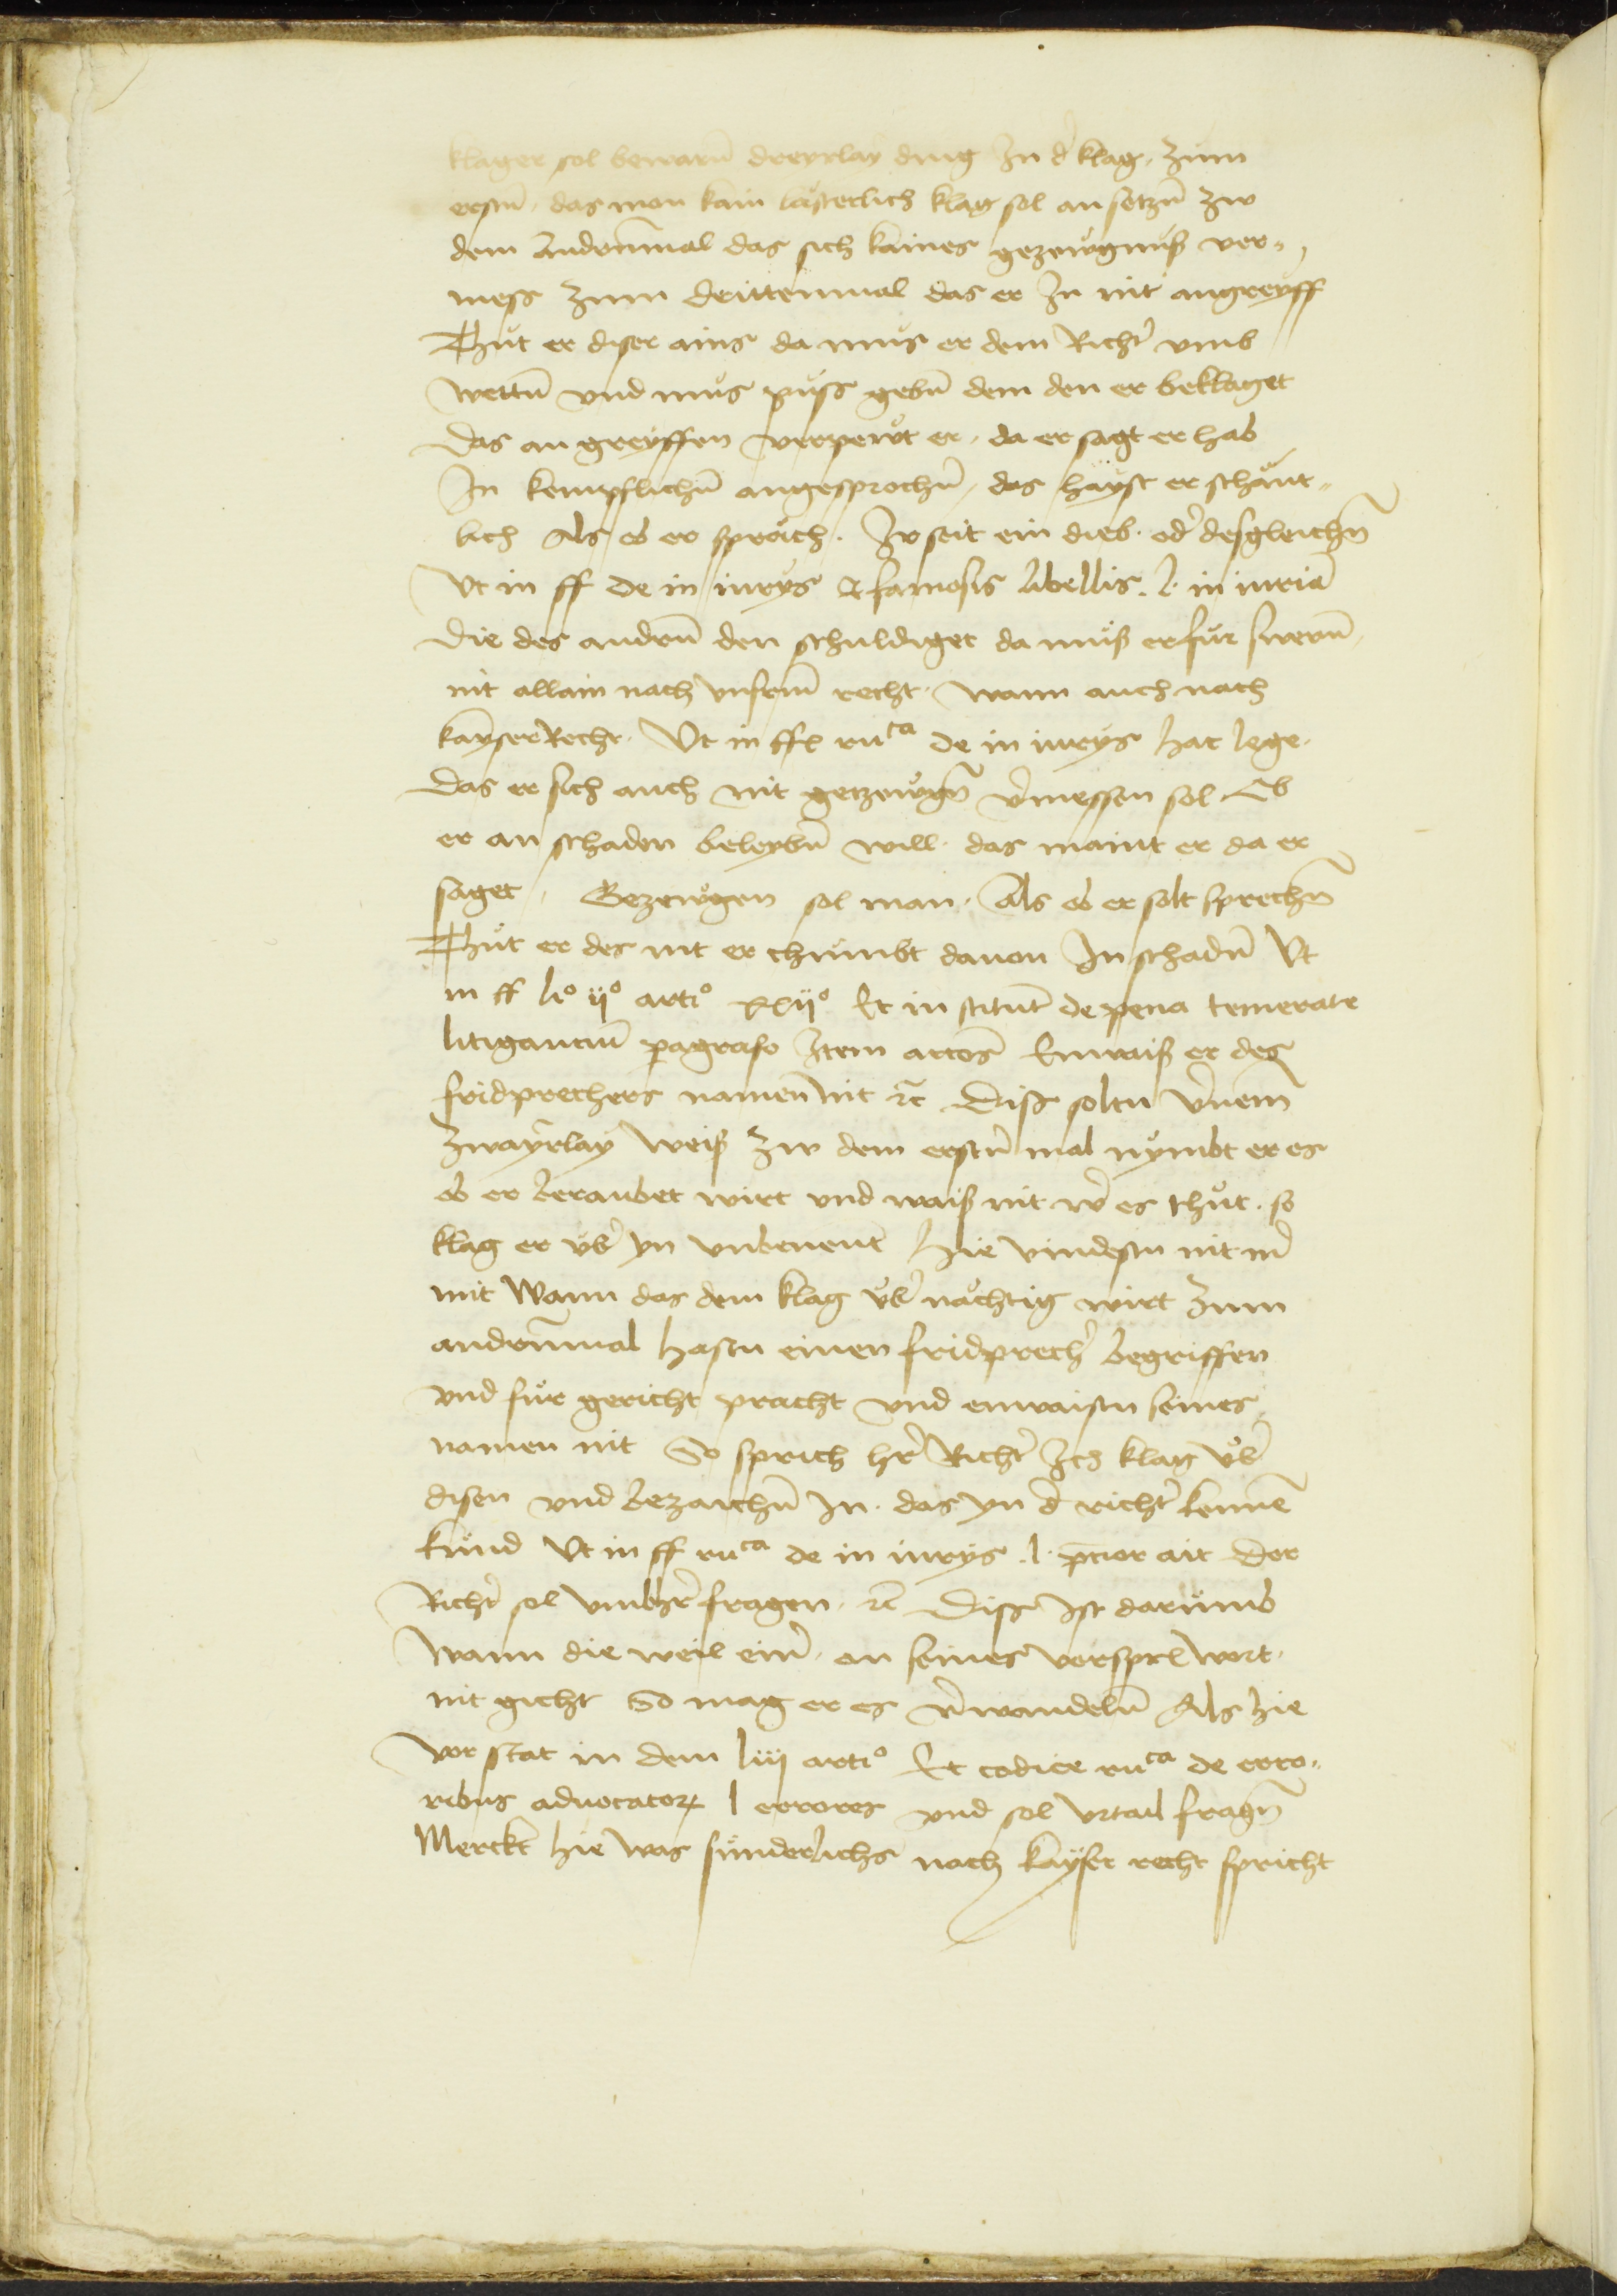 klager sol bewarn̄ dreyrlay ding In d' klag. Zum
erstn̄. das man kain lästerlich klag sol an setzn̄ zw
dem Andern̄mal das sich kaines gezewgnuß ver¬
mess Zum drittenmal das er In nit angreyff
Thut er diser ains da mus er dem Richt' vmb
wettn̄ vnd mus puss gebn̄ dem den er beklaget
Das an greyffen verpewt er. da er sagt er hab
In kempflichn̄ angesprochn̄, das häyst er schänt¬
lich Als ob er spräch. Ir seit ein dieb. od' desgleichn̄
Vt in ff de in iurys & famosis libellis. l. in iuriā
Die des andrn̄ den schuldiget da muß er für swern̄
nit allain nach vnsrm̄ recht. Wann auch nach
kayser Recht. Vt in ff ruca de in iurys hac lege.
Das er sich auch nit getzewgn̄ v'messen sol Ob
er an schaden beleybn̄ will. das maint er da er
saget. Gezewgen sol man. Als ob er solt sprechn̄
Thut er des nit er chumbt dauon In schadn̄ Vt
in ff lio ijo artio xxijo Et in stitut̄ de pena temerate
litiganciū pagrafo Item actōs Enwaiß er des
fridprechers namen̄ nit rc̄ Diss soltu v'nem̄
Zwayrlay weiß Zw dem erstn̄ mal nymbt er es
ob er beraubet wirt vnd waiß nit w' es thut. so
klag er vb' yn vnbenent Hie vindestu nit m'
mit Wann das dem klag vb' nächtig wirt Zum
andern̄mal hastu einen fridprech' begriffen
vnd für gericht pracht vnd enwaistu seines
namen nit So sprich hr' Richt' Ich klag vb'
disen vnd bezaichn̄ In. das yn d' richt' kennē
kund Vt in ff ruca de in iurys. l. p̄tor ait Der
Richt' sol vmb Ir' fragen. rc̄ Diss Ist darumb
Wann die weil ein'. an seines vorspr' wort.
nit gicht So mag er es v'wandeln̄ Als hie
vor stat in dem liij artio Et codice ruca de erro¬
ribus aduocatoꝝ l errores vnd sol vrtail fragn̄
Merckt hie was sunderlichs nach kayser recht spricht